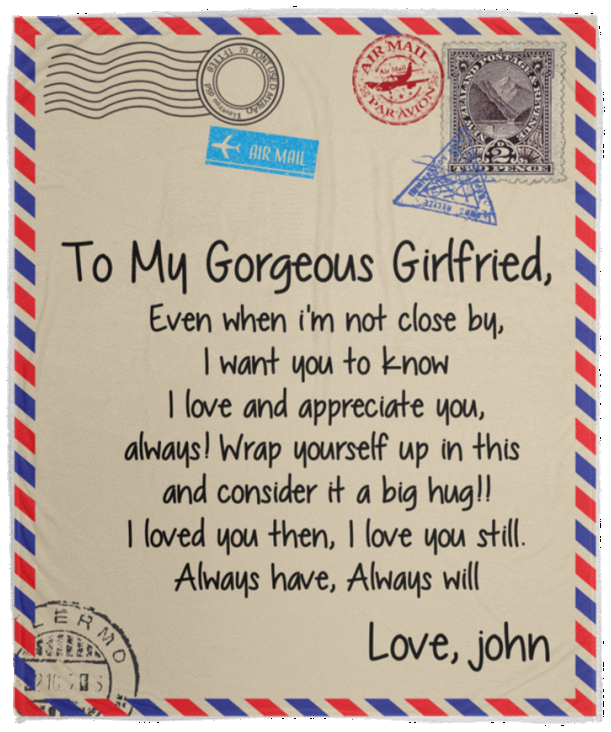 AIR MAIL
Air Mail
PAR AVION
AIR MAIL
TWO PENCE
2
To My Gorgeous Girlfried,
Even when i'm not close by,
I want you to know
I love and appreciate you,
always! Wrap yourself up in this
and consider it a big hug!!
I loved you then, I love you still.
Always have, Always will
Love, john
LERMO